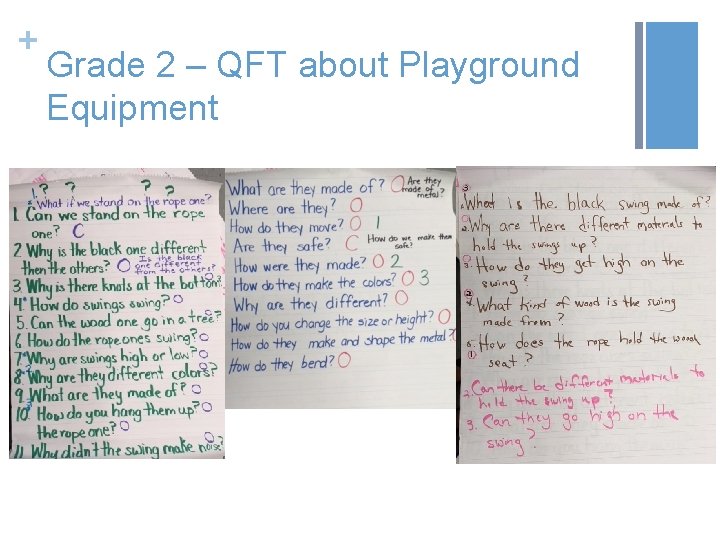 +
Grade 2 – QFT about Playground
Equipment
1.? ? ? ?
What if we stand on the rope one?
1. Can we stand on the rope
one? C
2. Why is the black one different
then the others? O Is the black
one different
from the others?
3. Why is there knots at the bottom? O
4. How do swings swing? O
5. Can the wood one go in a tree?
6. How do the rope ones swing? O
7. Why are swings high or low? O
8. Why are they different colors? O
9. What are they made of? O
10. How do you hang them up? O
the rope one? O
11. Why didn't the swing make noise?
What are they made of? O Are they
made of
metal?
Where are they? O
How do they move? O 1
Are they safe? C How do we make them
safe?
How were they made? O 2
How do they make the colors? O 3
Why are they different? O
How do you change the size or height? O
How do they make and shape the metal? O
How do they bend? O
3
1. What is the black swing made of?
2. Why are there different materials to
hold the swings up?
3. How do they get high on the
swing?
2
4. What kind of wood is the swing
made from?
5. How does the rope hold the wood
1
seat?
2. Can there be different materials to
hold the swing up?
3. Can they go high on the
swing?